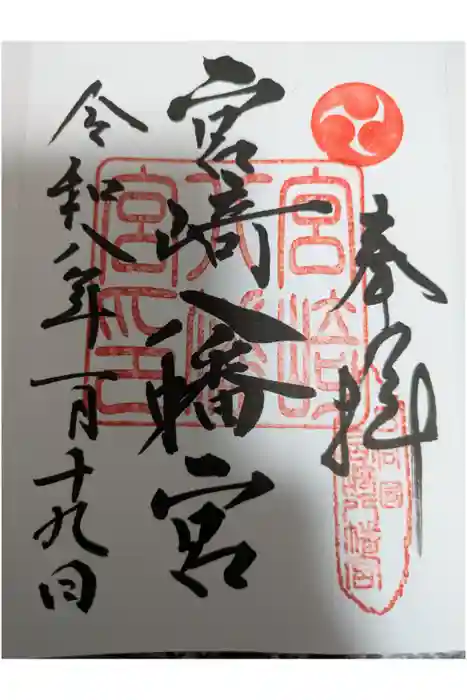 奉拝
宮崎八幡宮
令和八年一月十九日
宮崎
八幡
宮印